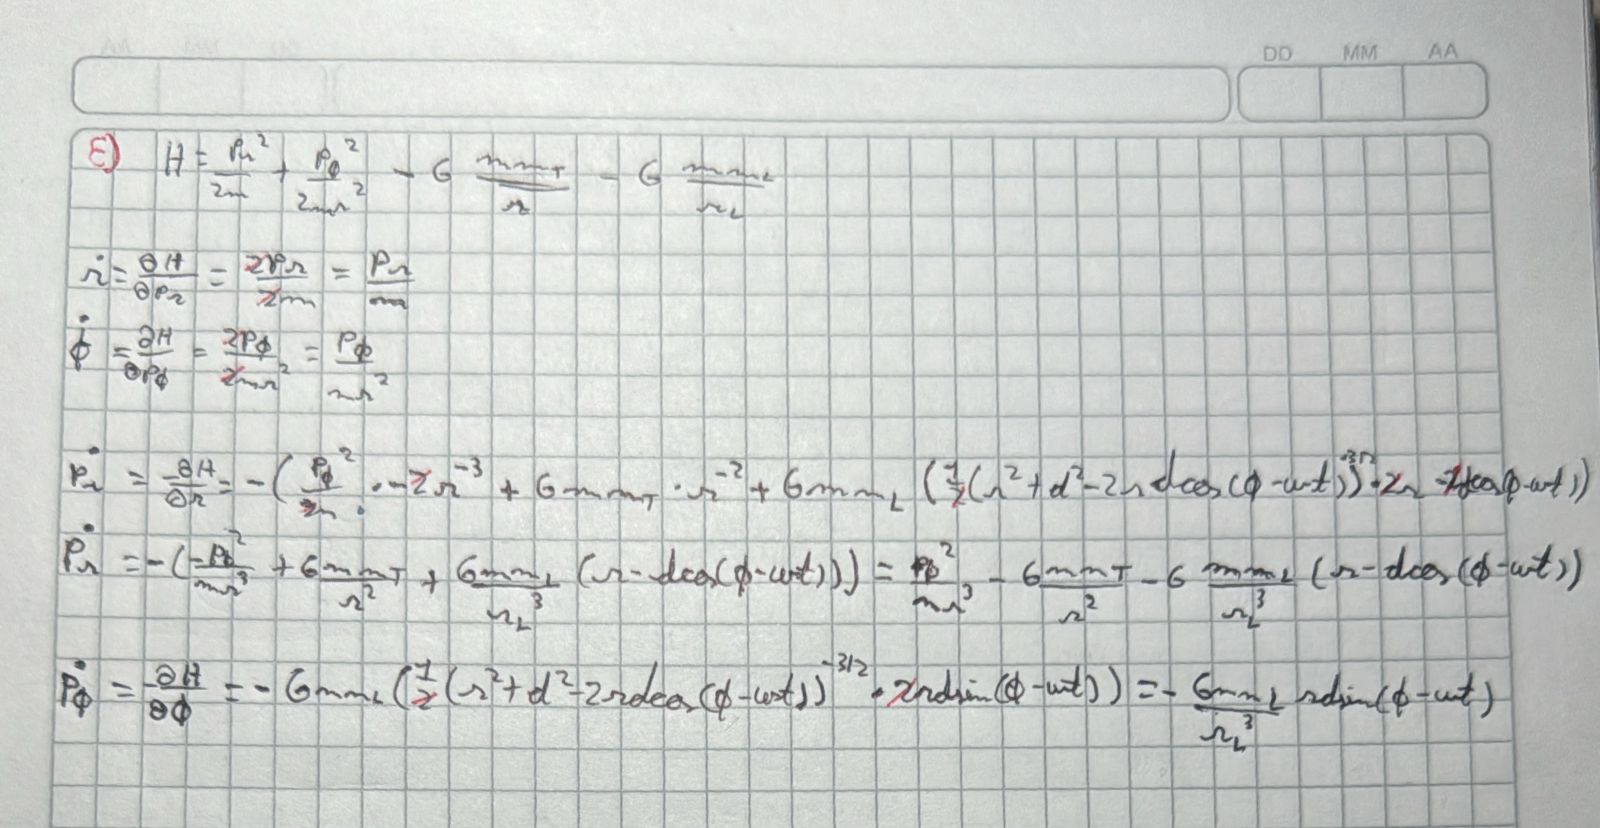 DD MM AA
E) H = Pr²/2m + Pϕ²/2mr² - G mmT/r - G mmL/rL
ṙ = ∂H/∂Pr = 2Pr/2m = Pr/m
ϕ̇ = ∂H/∂Pϕ = 2Pϕ/2mr² = Pϕ/mr²
Ṗr = ∂H/∂r = -(Pϕ²/2m · -2r⁻³ + GmmT · r⁻² + GmmL (1/2(r²+d²-2rdcos(ϕ-wt))^-3/2 · 2r - 2dcos(ϕ-wt))
Ṗr = -(-Pϕ²/mr³ + GmmT/r² + GmmL/rL³ (r-dcos(ϕ-wt))) = Pϕ²/mr³ - GmmT/r² - G mmL/rL³ (r-dcos(ϕ-wt))
Ṗϕ = ∂H/∂ϕ = -GmmL(1/2(r²+d²-2rdcos(ϕ-wt))^-3/2 · 2rdsin(ϕ-wt)) = -GmmL/rL³ rdsin(ϕ-wt)